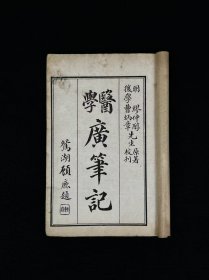 明 繆仲醇先生原著
後學曹炳章校刊
醫學
廣筆記
鴛湖顧庶題